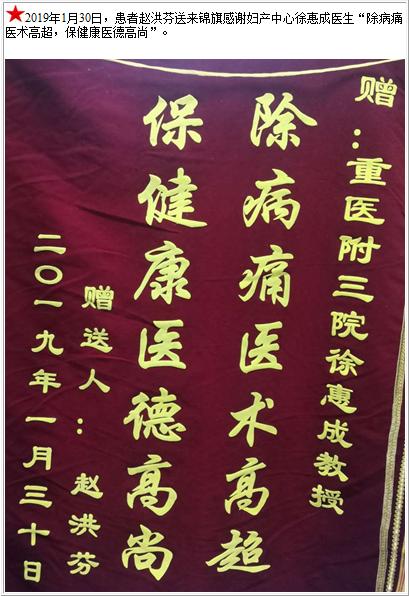 2019年1月30日，患者赵洪芬送来锦旗感谢妇产中心徐惠成医生“除病痛
医术高超，保健康医德高尚”。
赠：重医附三院徐惠成教授
除病痛医术高超
保健康医德高尚
赠送人：赵洪芬
二〇一九年一月三十日